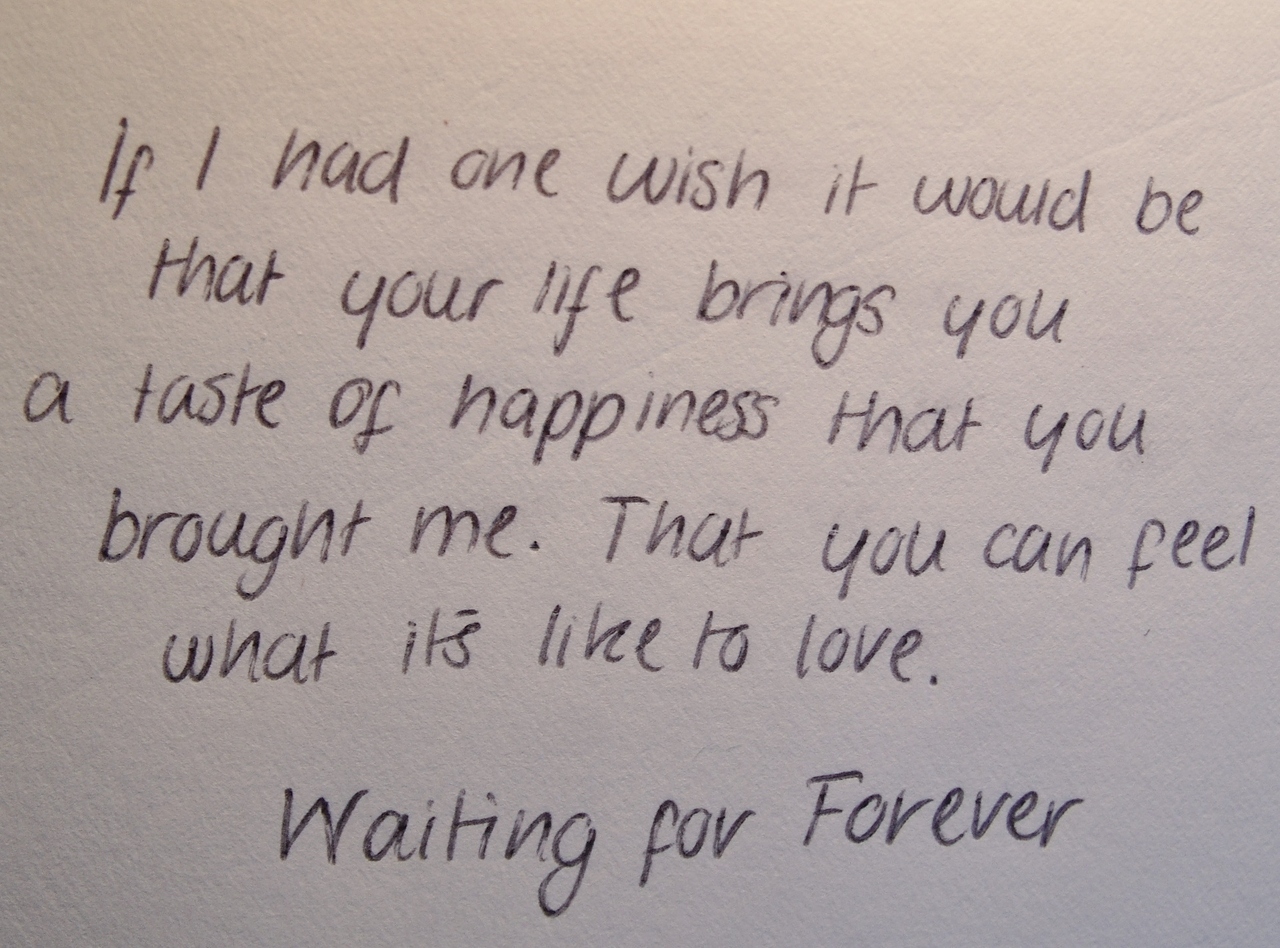 If I had one wish it would be
that your life brings you
a taste of happiness that you
brought me. That you can feel
what it's like to love.
Waiting for Forever